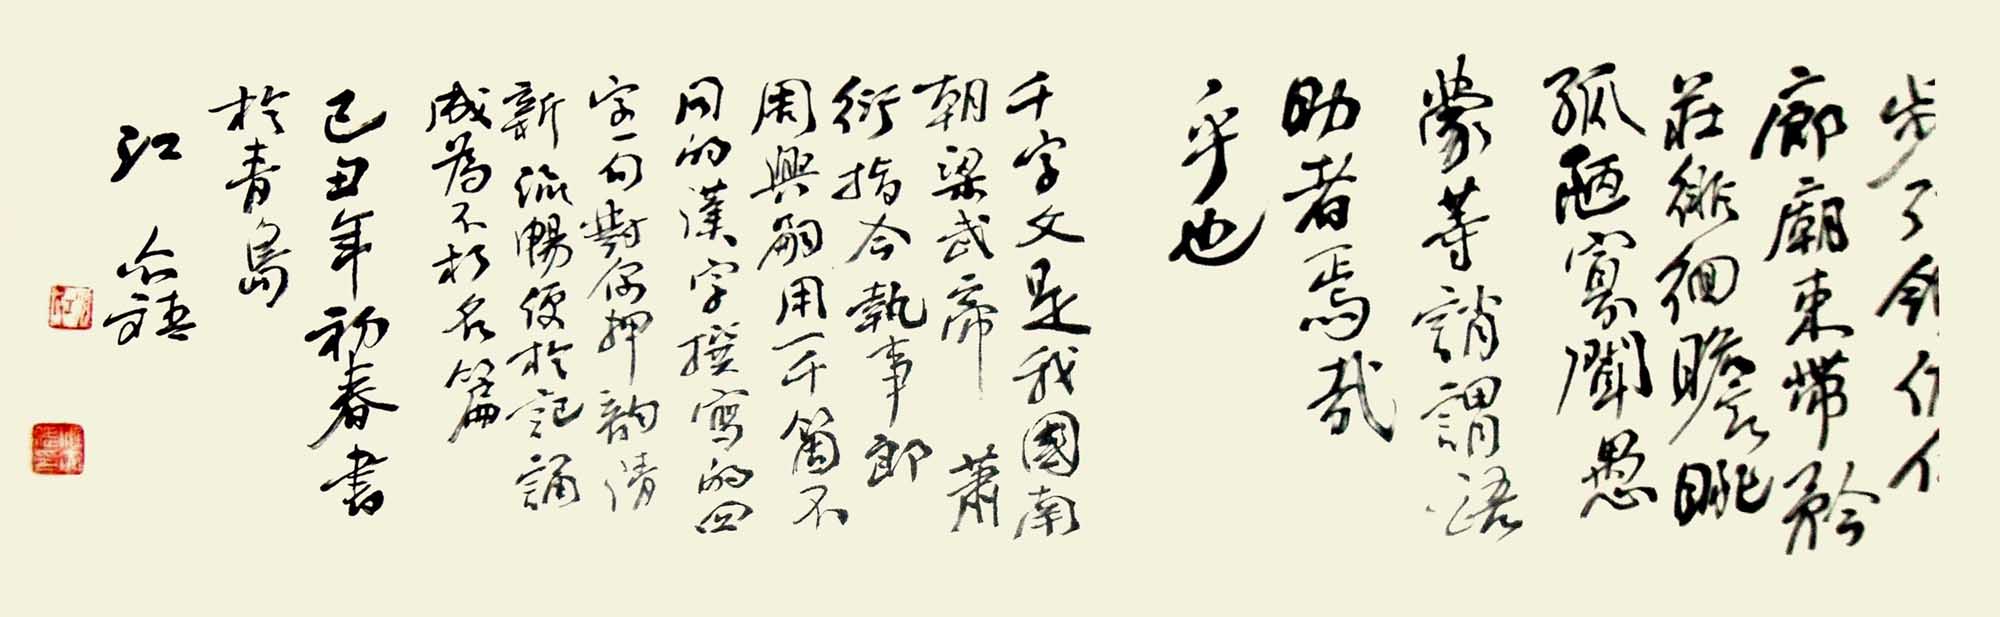 步引領俯仰
廊廟束帶矜
莊徘徊瞻眺
孤陋寡聞愚
蒙等誚謂語
助者焉哉
乎也
千字文是我國南
朝梁武帝 蕭
衍指令執事郎
周興嗣用一千箇不
同的漢字撰寫的四
字一句對偶押韵清
新流暢便於記誦
成為不朽名篇
己丑年初春書
於青島
江